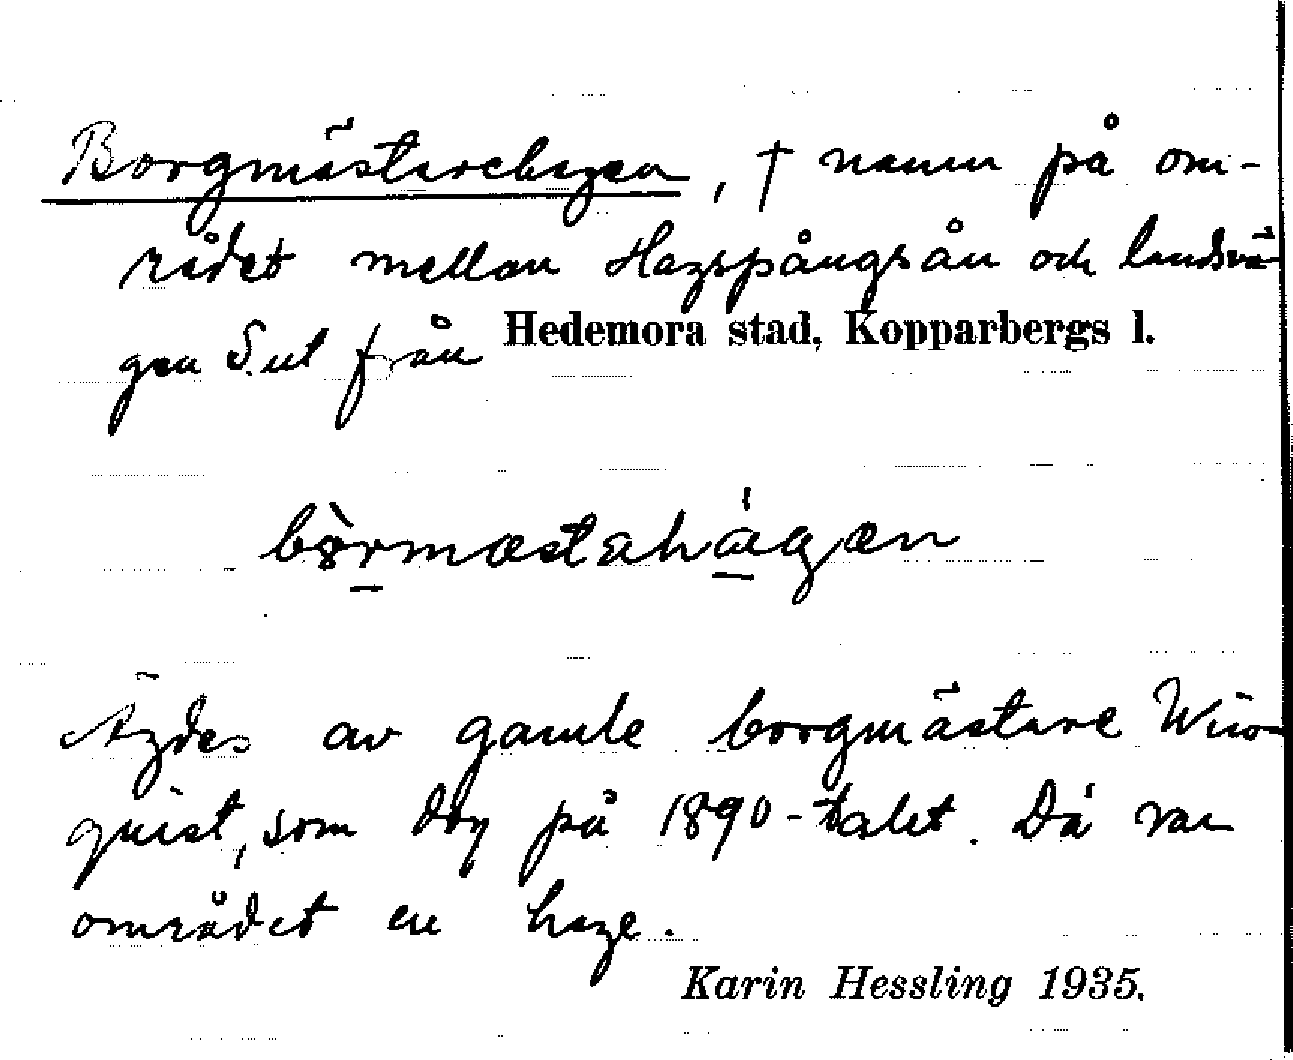 Borgmästarehagen, † namn på om-
rådet mellan Haggpångsån och landsvä-
gen S. ut från Hedemora stad, Kopparbergs l.
bòrmæstahágæn
Ägdes av gamle borgmästare Win-
quist, som dog på 1890-talet. Då var
området en hage.
Karin Hessling 1935.